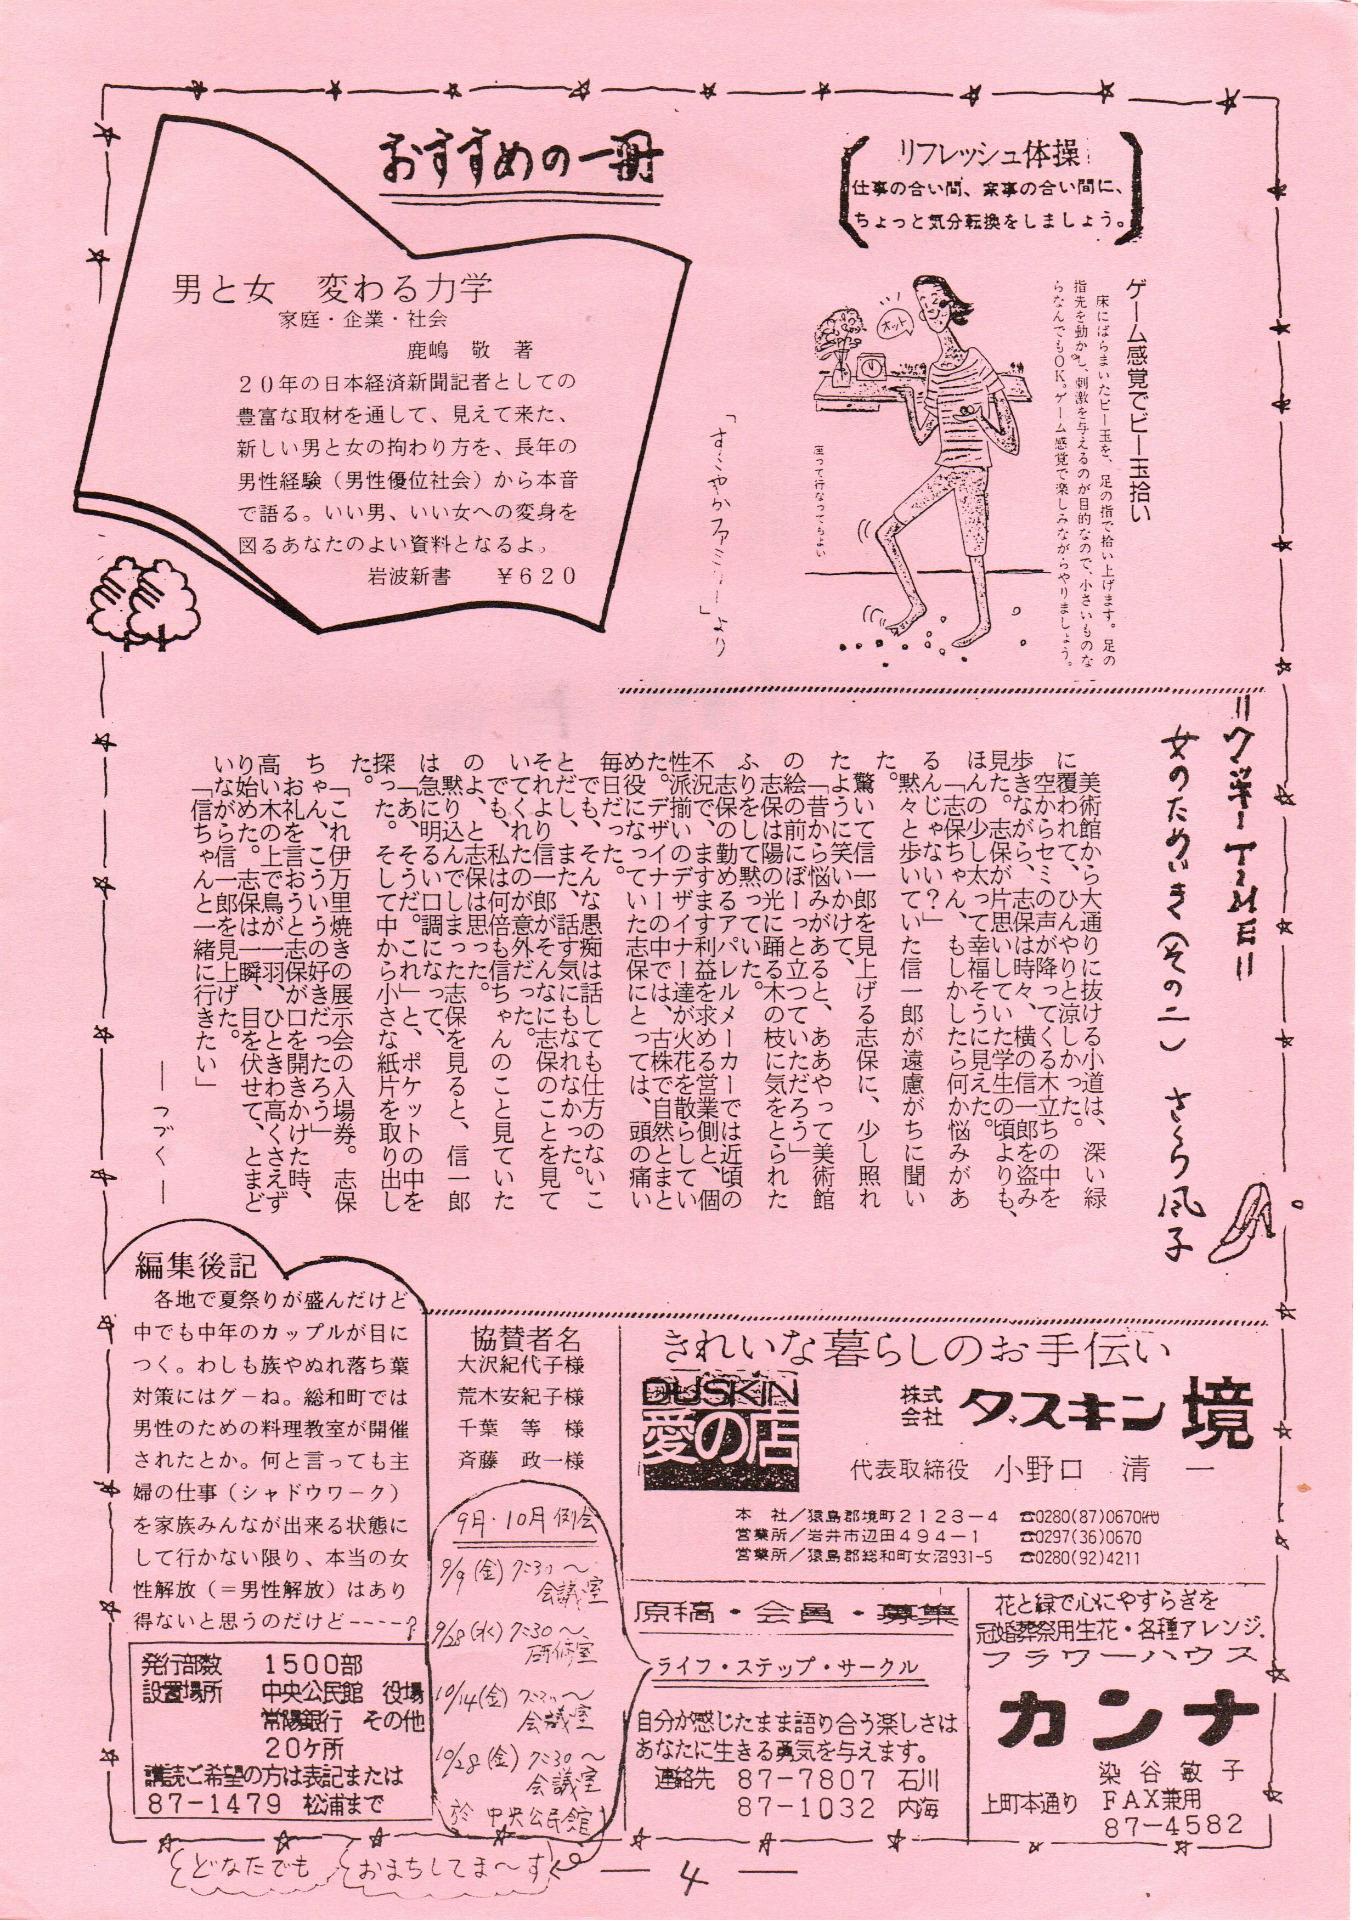 おすすめの一冊
男と女　変わる力学
家庭・企業・社会
鹿嶋　敬　著
２０年の日本経済新聞記者としての
豊富な取材を通して、見えて来た、
新しい男と女の拘わり方を、長年の
男性経験（男性優位社会）から本音
で語る。いい男、いい女への変身を
図るあなたのよい資料となるよ。
岩波新書　￥６２０
リフレッシュ体操
仕事の合い間、家事の合い間に、
ちょっと気分転換をしましょう。
ゲーム感覚でビー玉拾い
床にばらまいたビー玉を、足の指で拾い上げます。足の
指先を動かし、刺激を与えるのが目的なので、小さいものな
らなんでもＯＫ。ゲーム感覚で楽しみながらやりましょう。
ホットッ
座って行なってもよい
「すこやかファミリー」より
女のためいき（その二）　さくら風子
美術館から大通りに抜ける小道は、深い緑
に覆われて、ひんやりと涼しかった。
空からセミの声が降ってくる木立ちの中を
歩きながら、志保は時々、横の信一郎を盗み
見た。志保が片思いしていた学生の頃よりも、
ほんの少し太って幸福そうに見えた。
「志保ちゃん、もしかしたら何か悩みがあ
るんじゃない？」
黙々と歩いていた信一郎が遠慮がちに聞い
た。
驚いて信一郎を見上げる志保に、少し照れ
たように笑いかけて、
「昔から悩みがあると、ああやって美術館
の絵の前にぼーっと立っていただろう」
志保は陽の光に踊る木の枝に気をとられた
ふりをして黙っていた。
志保の勤めるアパレルメーカーでは近頃の
不況で、ますます利益を求める営業側と、個
性派揃いのデザイナー達が火花を散らしてい
た。デザイナーの中では、古株で自然とまと
め役になっていた志保にとっては、頭の痛い
毎日だった。
でも、そんな愚痴は話しても仕方のないこ
とだし、また、話す気にもなれなかった。
それより信一郎がそんなに志保のことを見て
いてくれたのが意外だった。
でも、私は何倍も信ちゃんのこと見ていた
のよ、と志保は思った。
黙り込んでしまった志保を見ると、信一郎
は急に明るい口調になって、
「あ、そうだ。これ」と、ポケットの中を
探った。そして中から小さな紙片を取り出し
た。
「これ伊万里焼きの展示会の入場券。志保
ちゃん、こういうの好きだったろう」
お礼を言おうと志保が口を開きかけた時、
高い木の上で鳥が一羽、ひときわ高くさえず
り始めた。志保は一瞬、目を伏せて、とまど
いながら信一郎を見上げた。
「信ちゃんと一緒に行きたい」
―つづく―
編集後記
各地で夏祭りが盛んだけど
中でも中年のカップルが目に
つく。わしも族やぬれ落ち葉
対策にはグーね。総和町では
男性のための料理教室が開催
されたとか。何と言っても主
婦の仕事（シャドウワーク）
を家族みんなが出来る状態に
して行かない限り、本当の女
性解放（＝男性解放）はあり
得ないと思うのだけど----？
発行部数　１５００部
設置場所　中央公民館　役場
常陽銀行　その他
２０ケ所
講読ご希望の方は表記または
８７-１４７９　松浦まで
協賛者名
大沢紀代子様
荒木安紀子様
千葉　等　様
斉藤　政一様
9月・10月例会
9/9（金）7:30～
会議室
9/28（水）7:30～
研修室
10/14（金）7:30～
会議室
10/28（金）7:30～
会議室
於 中央公民館
どなたでも　おまちしてま～す
きれいな暮らしのお手伝い
DUSKIN
愛の店
株式会社 ダスキン 境
代表取締役　小野口　清一
本　社／猿島郡境町２１２３－４　☎0280(87)0670㈹
営業所／岩井市辺田４９４－１　☎0297(36)0670
営業所／猿島郡総和町女沼931-5　☎0280(92)4211
原稿・会員・募集
ライフ・ステップ・サークル
自分が感じたまま語り合う楽しさは
あなたに生きる勇気を与えます。
連絡先　８７-７８０７　石川
８７-１０３２　内海
花と緑で心にやすらぎを
冠婚葬祭用生花・各種アレンジ.
フラワーハウス
カンナ
染谷敏子
上町本通り　ＦＡＸ兼用
８７-４５８２
― 4 ―